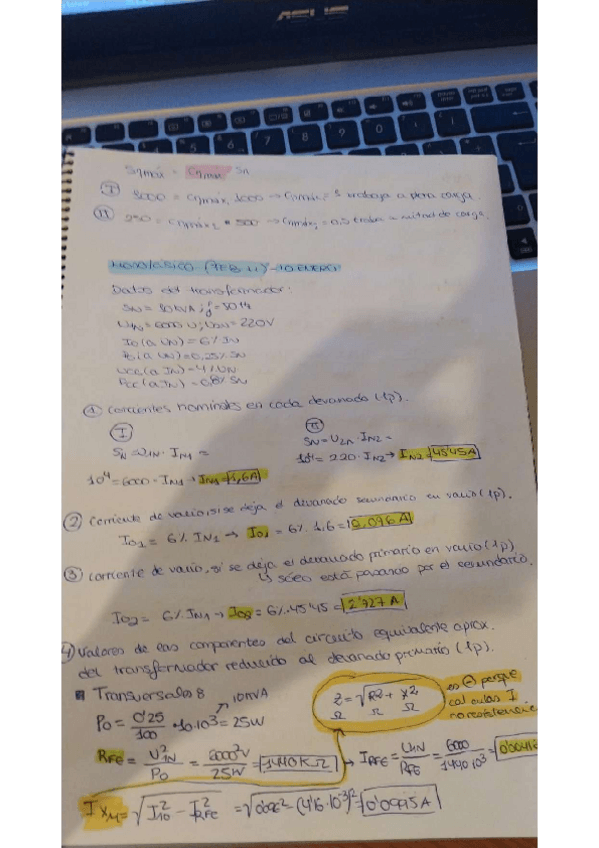 ASUS
Sηmáx = Cηmáx Sn
Ⓘ 1000 = Cηmáx₁ 1000 → Cηmáx₁ = 1 trabaja a plena carga.
Ⓘⓘ 250 = Cηmáx₂ * 500 → Cηmáx₂ = 0,5 trabaja a mitad de carga.
MONOFÁSICO (FEB 11) - 10 ENERO
Datos del transformador:
SN = 10 KVA; f = 50 Hz
U1N = 6000 V; U2N = 220V
I0 (a UN) = 6% IN
P0 (a UN) = 0,25% SN
UCC (a IN) = 4% UN
PCC (a IN) = 0,8% SN
① Corrientes nominales en cada devanado (1p).
Ⓘ
SN = U1N · IN1 =
10⁴ = 6000 · IN1 → IN1 = 1,6A
Ⓘⓘ
SN = U2N · IN2 =
10⁴ = 220 · IN2 → IN2 = 45'45A
② Corriente de vacío, si se deja el devanado secundario en vacío (1p).
I01 = 6% IN1 → I01 = 6% · 1,6 = 0,096 A
③ Corriente de vacío, si se deja el devanado primario en vacío (1p)
↳ sólo está pasando por el secundario.
I02 = 6% IN1 → I02 = 6% · 45'45 = 2'727 A
④ Valores de las componentes del circuito equivalente aprox.
del transformador reducido al devanado primario (1p).
Transversales
10KVA
P0 = 0'25/100 · 10·10³ = 25W
Z = √R² + X²
Ω Ω Ω
es ⊖ porque
calculas I
no resistencia
RFE = U²1N/P0 = 6000²V/25W = 1440KΩ → IRFE = U1N/RFE = 6000/1440·10³ =
IXM = √I²10 - I²RFE = √0'096² - (4'16·10⁻³)² = 0'0995A